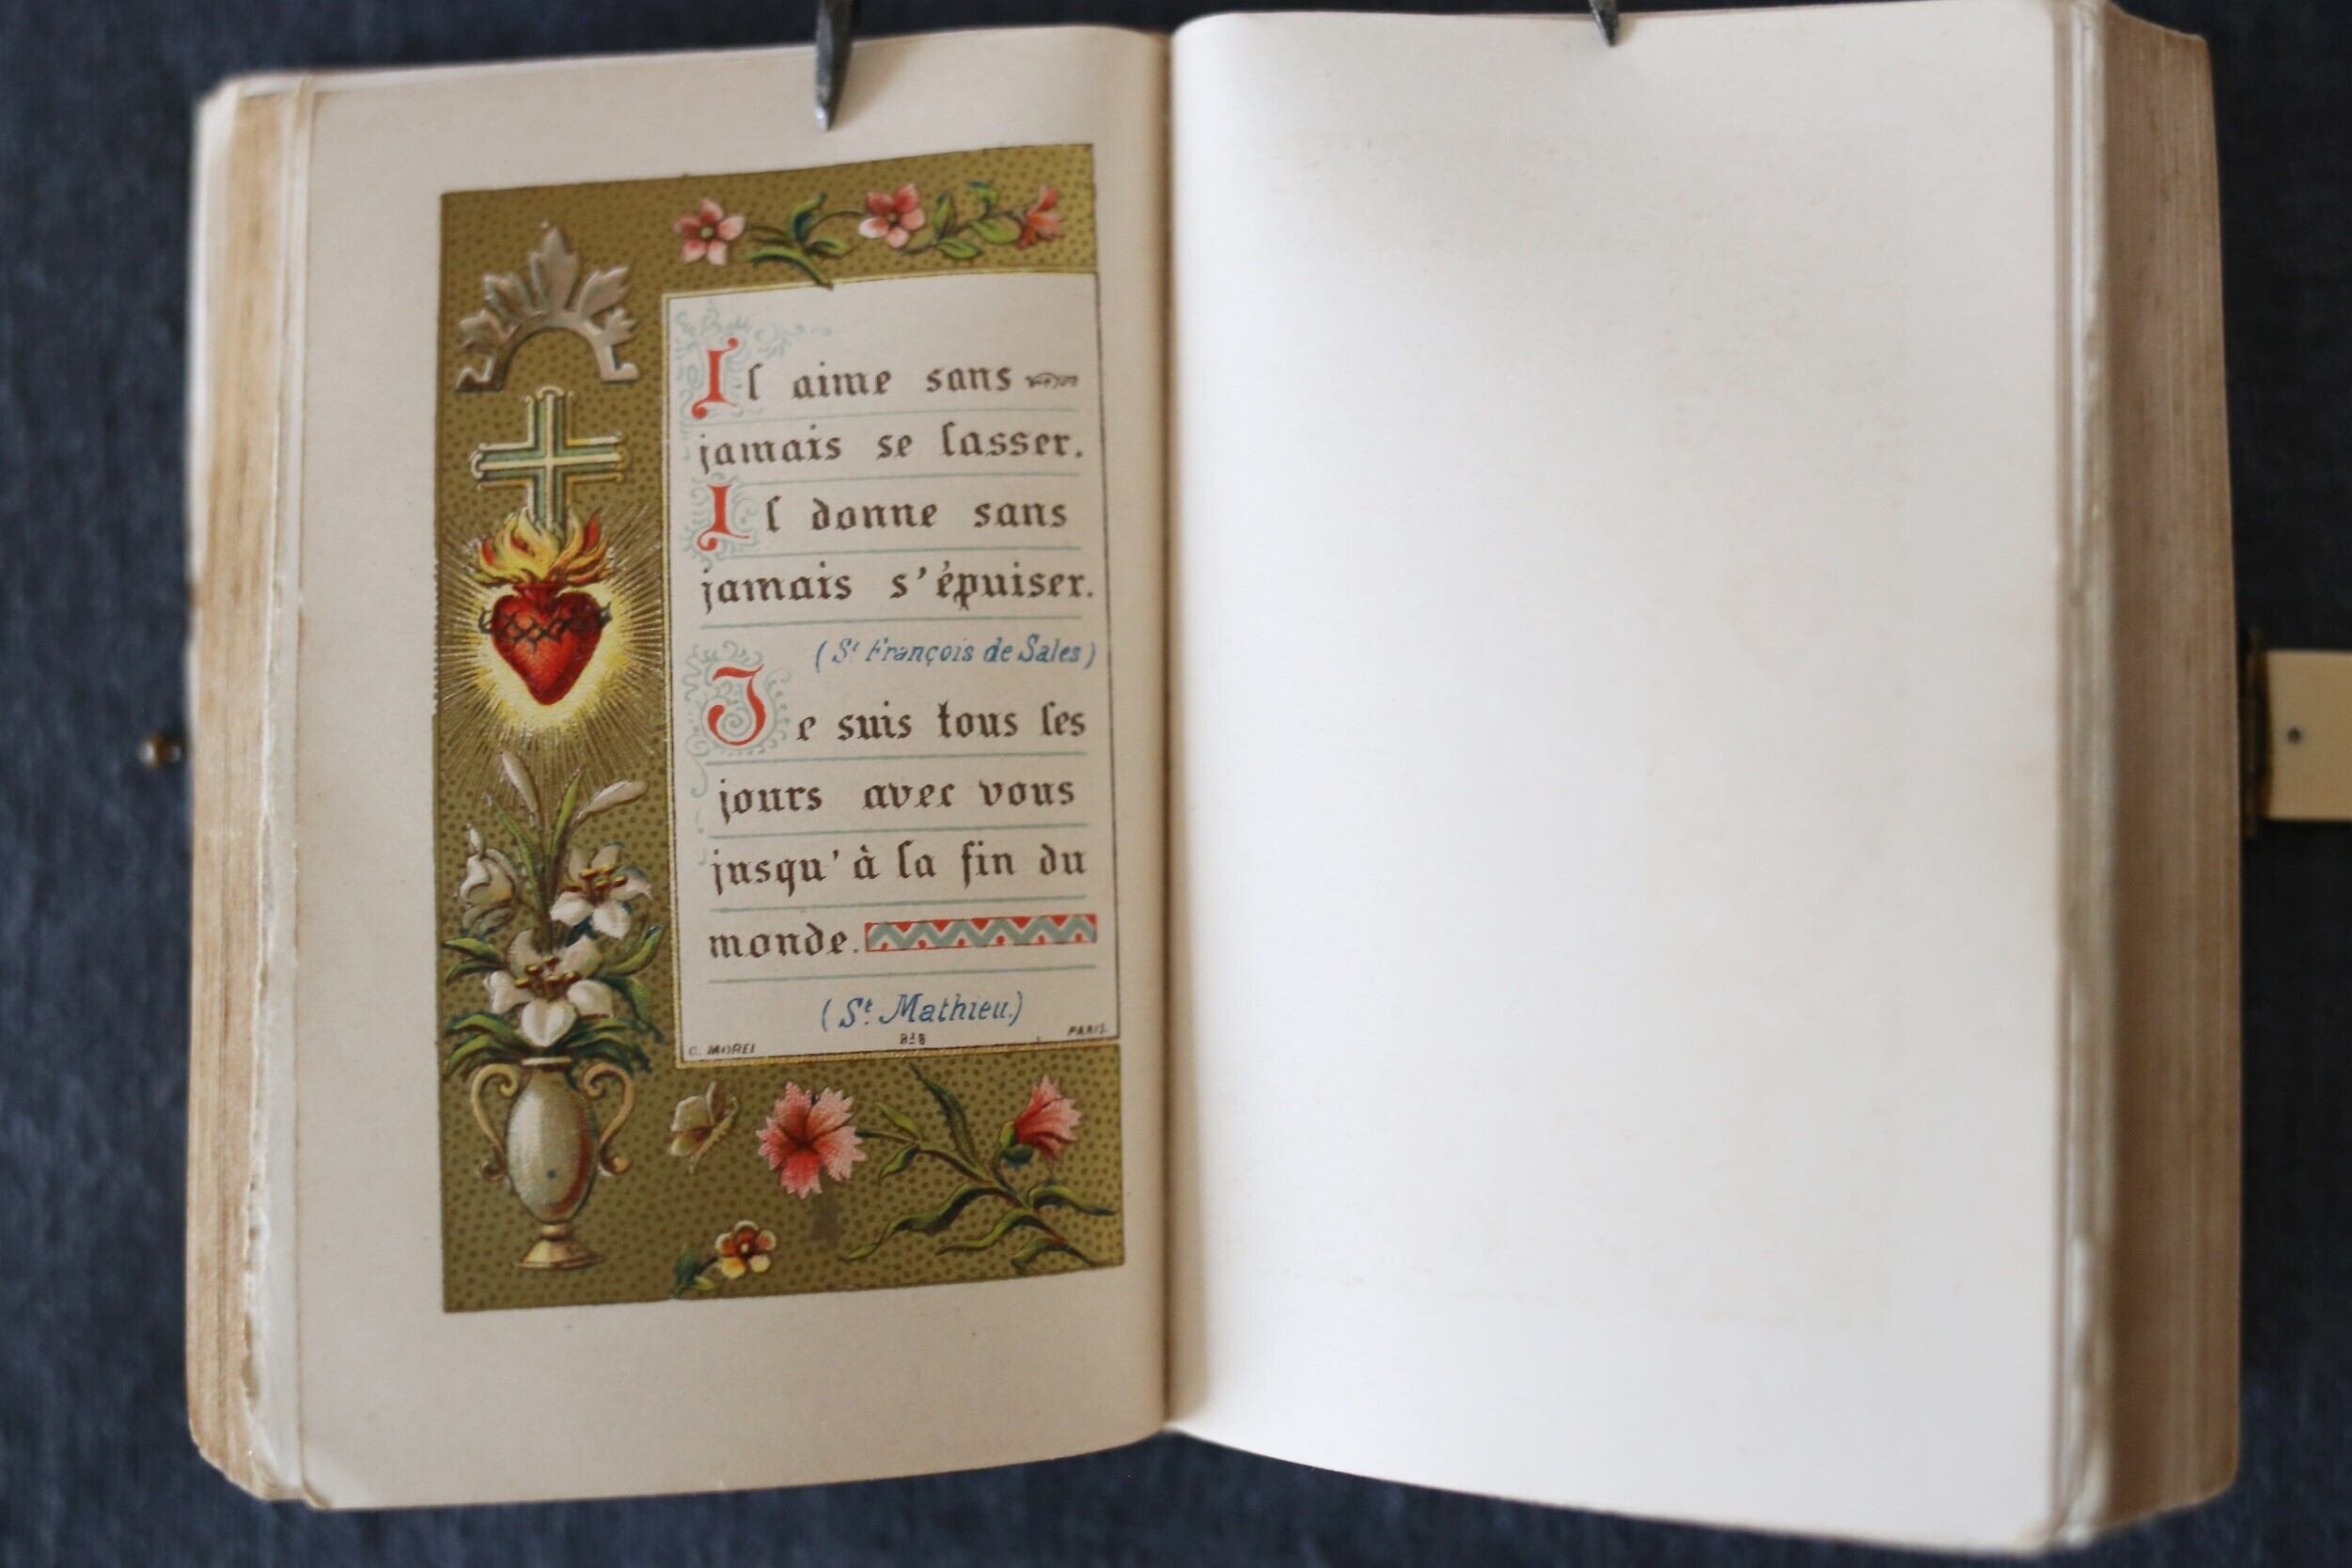 Il aime sans
jamais se lasser.
Il donne sans
jamais s'épuiser.
(St François de Sales)
Je suis tous les
jours avec vous
jusqu'à la fin du
monde.
(St. Mathieu.)
C. MOREL 818 PARIS.